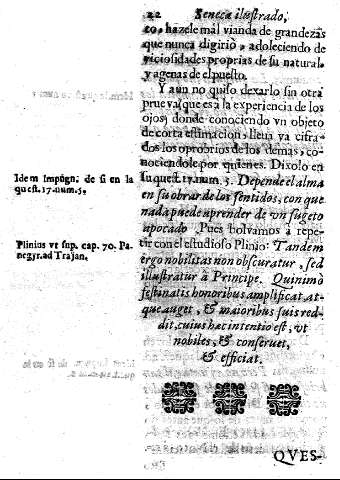 22 Seneca ilustrado,
co, hazele mal vianda de grandezas
que nunca digiriò, adoleciendo de
viciosidades proprias de su natural,
y agenas del puesto.
Y aun no quiso dexarlo sin otra
prueva, que es a la experiencia de los
ojos, donde conociendo vn objeto
de corta estimacion, lleua ya cifra-
dos los oprobrios de los demas, co-
nociendole por quienes. Dixolo en
Idem Impúgn. de si en la
quæst. 17. num. 5.
su quest. 17. num. 5. Depende el alma
en su obrar de los sentidos, con que
nada puede aprender de vn sugeto
apocado. Pues bolvamos a repe-
Plinius vt sup. cap. 70. Pa-
negyr. ad Trajan.
tir con el estudioso Plinio: Tandem
ergo nobilitas non obscuratur, sed
illustratur à Principe. Quinimò
festinatis honoribus amplificat, at-
que auget, & maioribus suis red-
dit, cuius hæc intentio est, vt
nobiles, & conseruet,
& efficiat.
QVES-